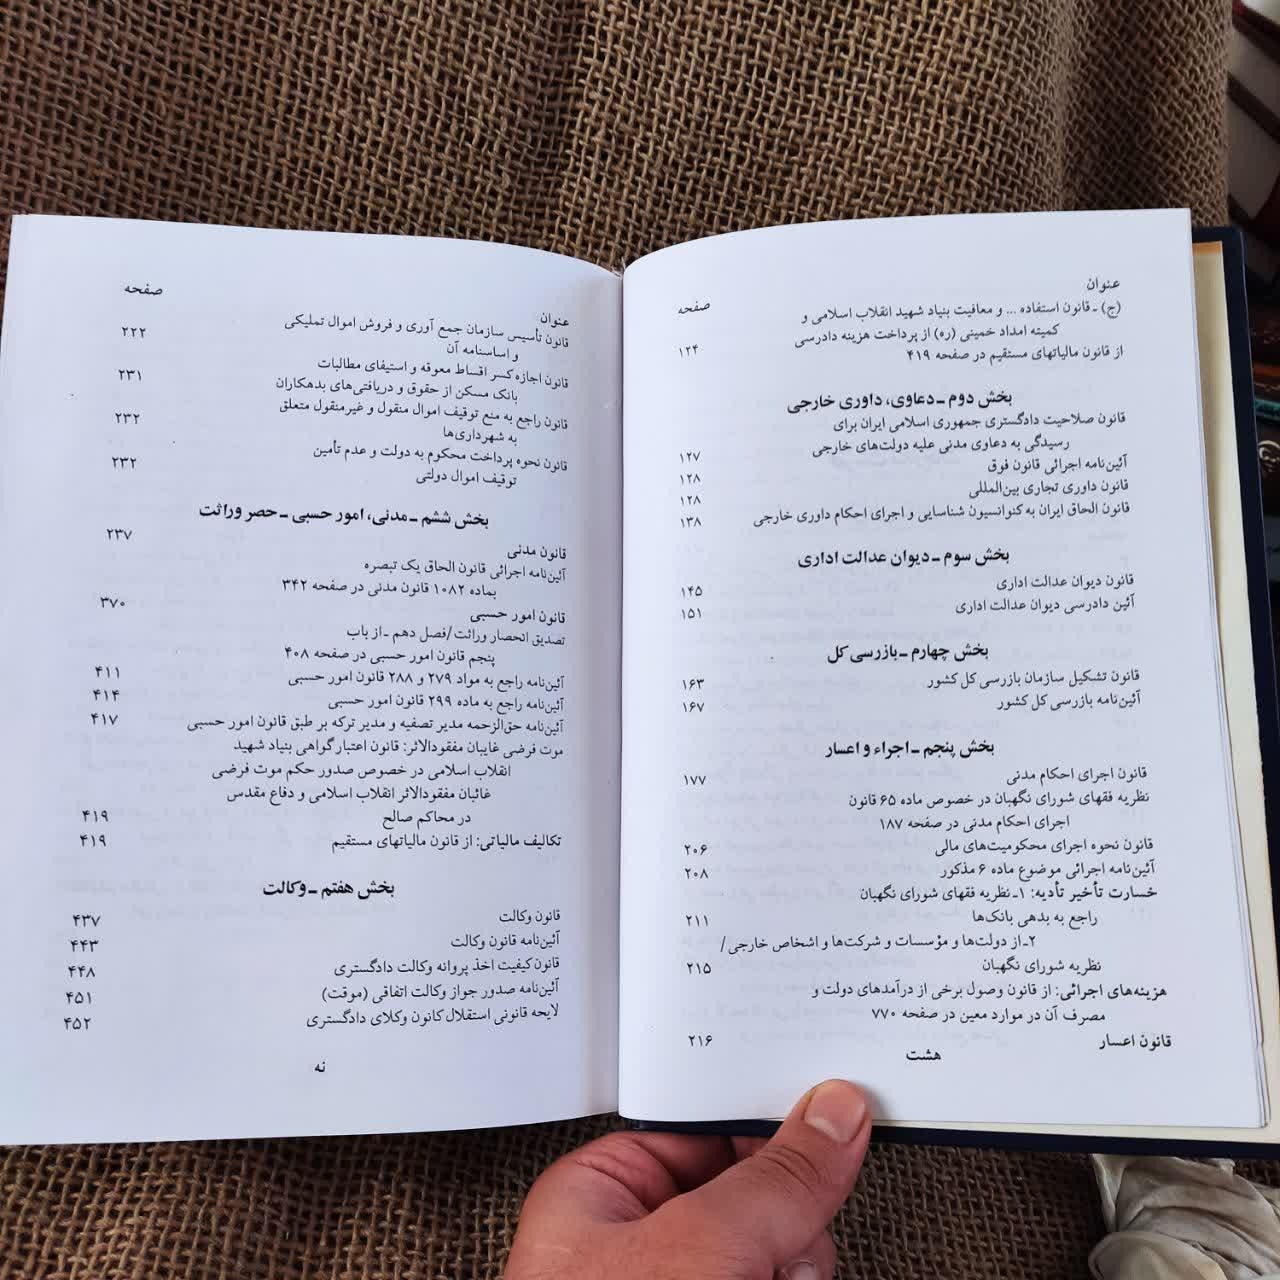 عنوان
صفحه
(ج) ـ قانون استفاده ... و معافیت بنیاد شهید انقلاب اسلامی و
کمیته امداد خمینی (ره) از پرداخت هزینه دادرسی ۱۲۴
از قانون مالیاتهای مستقیم در صفحه ۴۱۹
بخش دوم ـ دعاوی، داوری خارجی
قانون صلاحیت دادگستری جمهوری اسلامی ایران برای
رسیدگی به دعاوی مدنی علیه دولت‌های خارجی ۱۲۷
آئین‌نامه اجرائی قانون فوق ۱۲۸
قانون داوری تجاری بین‌المللی ۱۲۸
قانون الحاق ایران به کنوانسیون شناسایی و اجرای احکام داوری خارجی ۱۳۸
بخش سوم ـ دیوان عدالت اداری
قانون دیوان عدالت اداری ۱۴۵
آئین دادرسی دیوان عدالت اداری ۱۵۱
بخش چهارم ـ بازرسی کل
قانون تشکیل سازمان بازرسی کل کشور ۱۶۳
آئین‌نامه بازرسی کل کشور ۱۶۷
بخش پنجم ـ اجراء و اعسار
قانون اجرای احکام مدنی ۱۷۷
نظریه فقهای شورای نگهبان در خصوص ماده ۶۵ قانون
اجرای احکام مدنی در صفحه ۱۸۷
قانون نحوه اجرای محکومیت‌های مالی ۲۰۶
آئین‌نامه اجرائی موضوع ماده ۶ مذکور ۲۰۸
خسارت تأخیر تأدیه: ۱ـ نظریه فقهای شورای نگهبان
راجع به بدهی بانک‌ها ۲۱۱
۲ـ از دولت‌ها و مؤسسات و شرکت‌ها و اشخاص خارجی/
نظریه شورای نگهبان ۲۱۵
هزینه‌های اجرائی: از قانون وصول برخی از درآمدهای دولت و
مصرف آن در موارد معین در صفحه ۷۷۰
قانون اعسار ۲۱۶
هشت
عنوان
صفحه
قانون تأسیس سازمان جمع آوری و فروش اموال تملیکی
و اساسنامه آن ۲۲۲
قانون اجازه کسر اقساط معوقه و استیفای مطالبات
بانک مسکن از حقوق و دریافتی‌های بدهکاران ۲۳۱
قانون راجع به منع توقیف اموال منقول و غیرمنقول متعلق
به شهرداری‌ها ۲۳۲
قانون نحوه پرداخت محکوم به دولت و عدم تأمین
توقیف اموال دولتی ۲۳۲
بخش ششم ـ مدنی، امور حسبی ـ حصر وراثت
قانون مدنی ۲۳۷
آئین‌نامه اجرائی قانون الحاق یک تبصره
بماده ۱۰۸۲ قانون مدنی در صفحه ۳۴۲
قانون امور حسبی ۳۷۰
تصدیق انحصار وراثت/فصل دهم ـ از باب
پنجم قانون امور حسبی در صفحه ۴۰۸
آئین‌نامه راجع به مواد ۲۷۹ و ۲۸۸ قانون امور حسبی ۴۱۱
آئین‌نامه راجع به ماده ۲۹۹ قانون امور حسبی ۴۱۴
آئین‌نامه حق‌الزحمه مدیر تصفیه و مدیر ترکه بر طبق قانون امور حسبی ۴۱۷
موت فرضی غایبان مفقودالاثر: قانون اعتبار گواهی بنیاد شهید
انقلاب اسلامی در خصوص صدور حکم موت فرضی
غائبان مفقودالاثر انقلاب اسلامی و دفاع مقدس
در محاکم صالح ۴۱۹
تکالیف مالیاتی: از قانون مالیاتهای مستقیم ۴۱۹
بخش هفتم ـ وکالت
قانون وکالت ۴۳۷
آئین‌نامه قانون وکالت ۴۴۳
قانون کیفیت اخذ پروانه وکالت دادگستری ۴۴۸
آئین‌نامه صدور جواز وکالت اتفاقی (موقت) ۴۵۱
لایحه قانونی استقلال کانون وکلای دادگستری ۴۵۲
نه